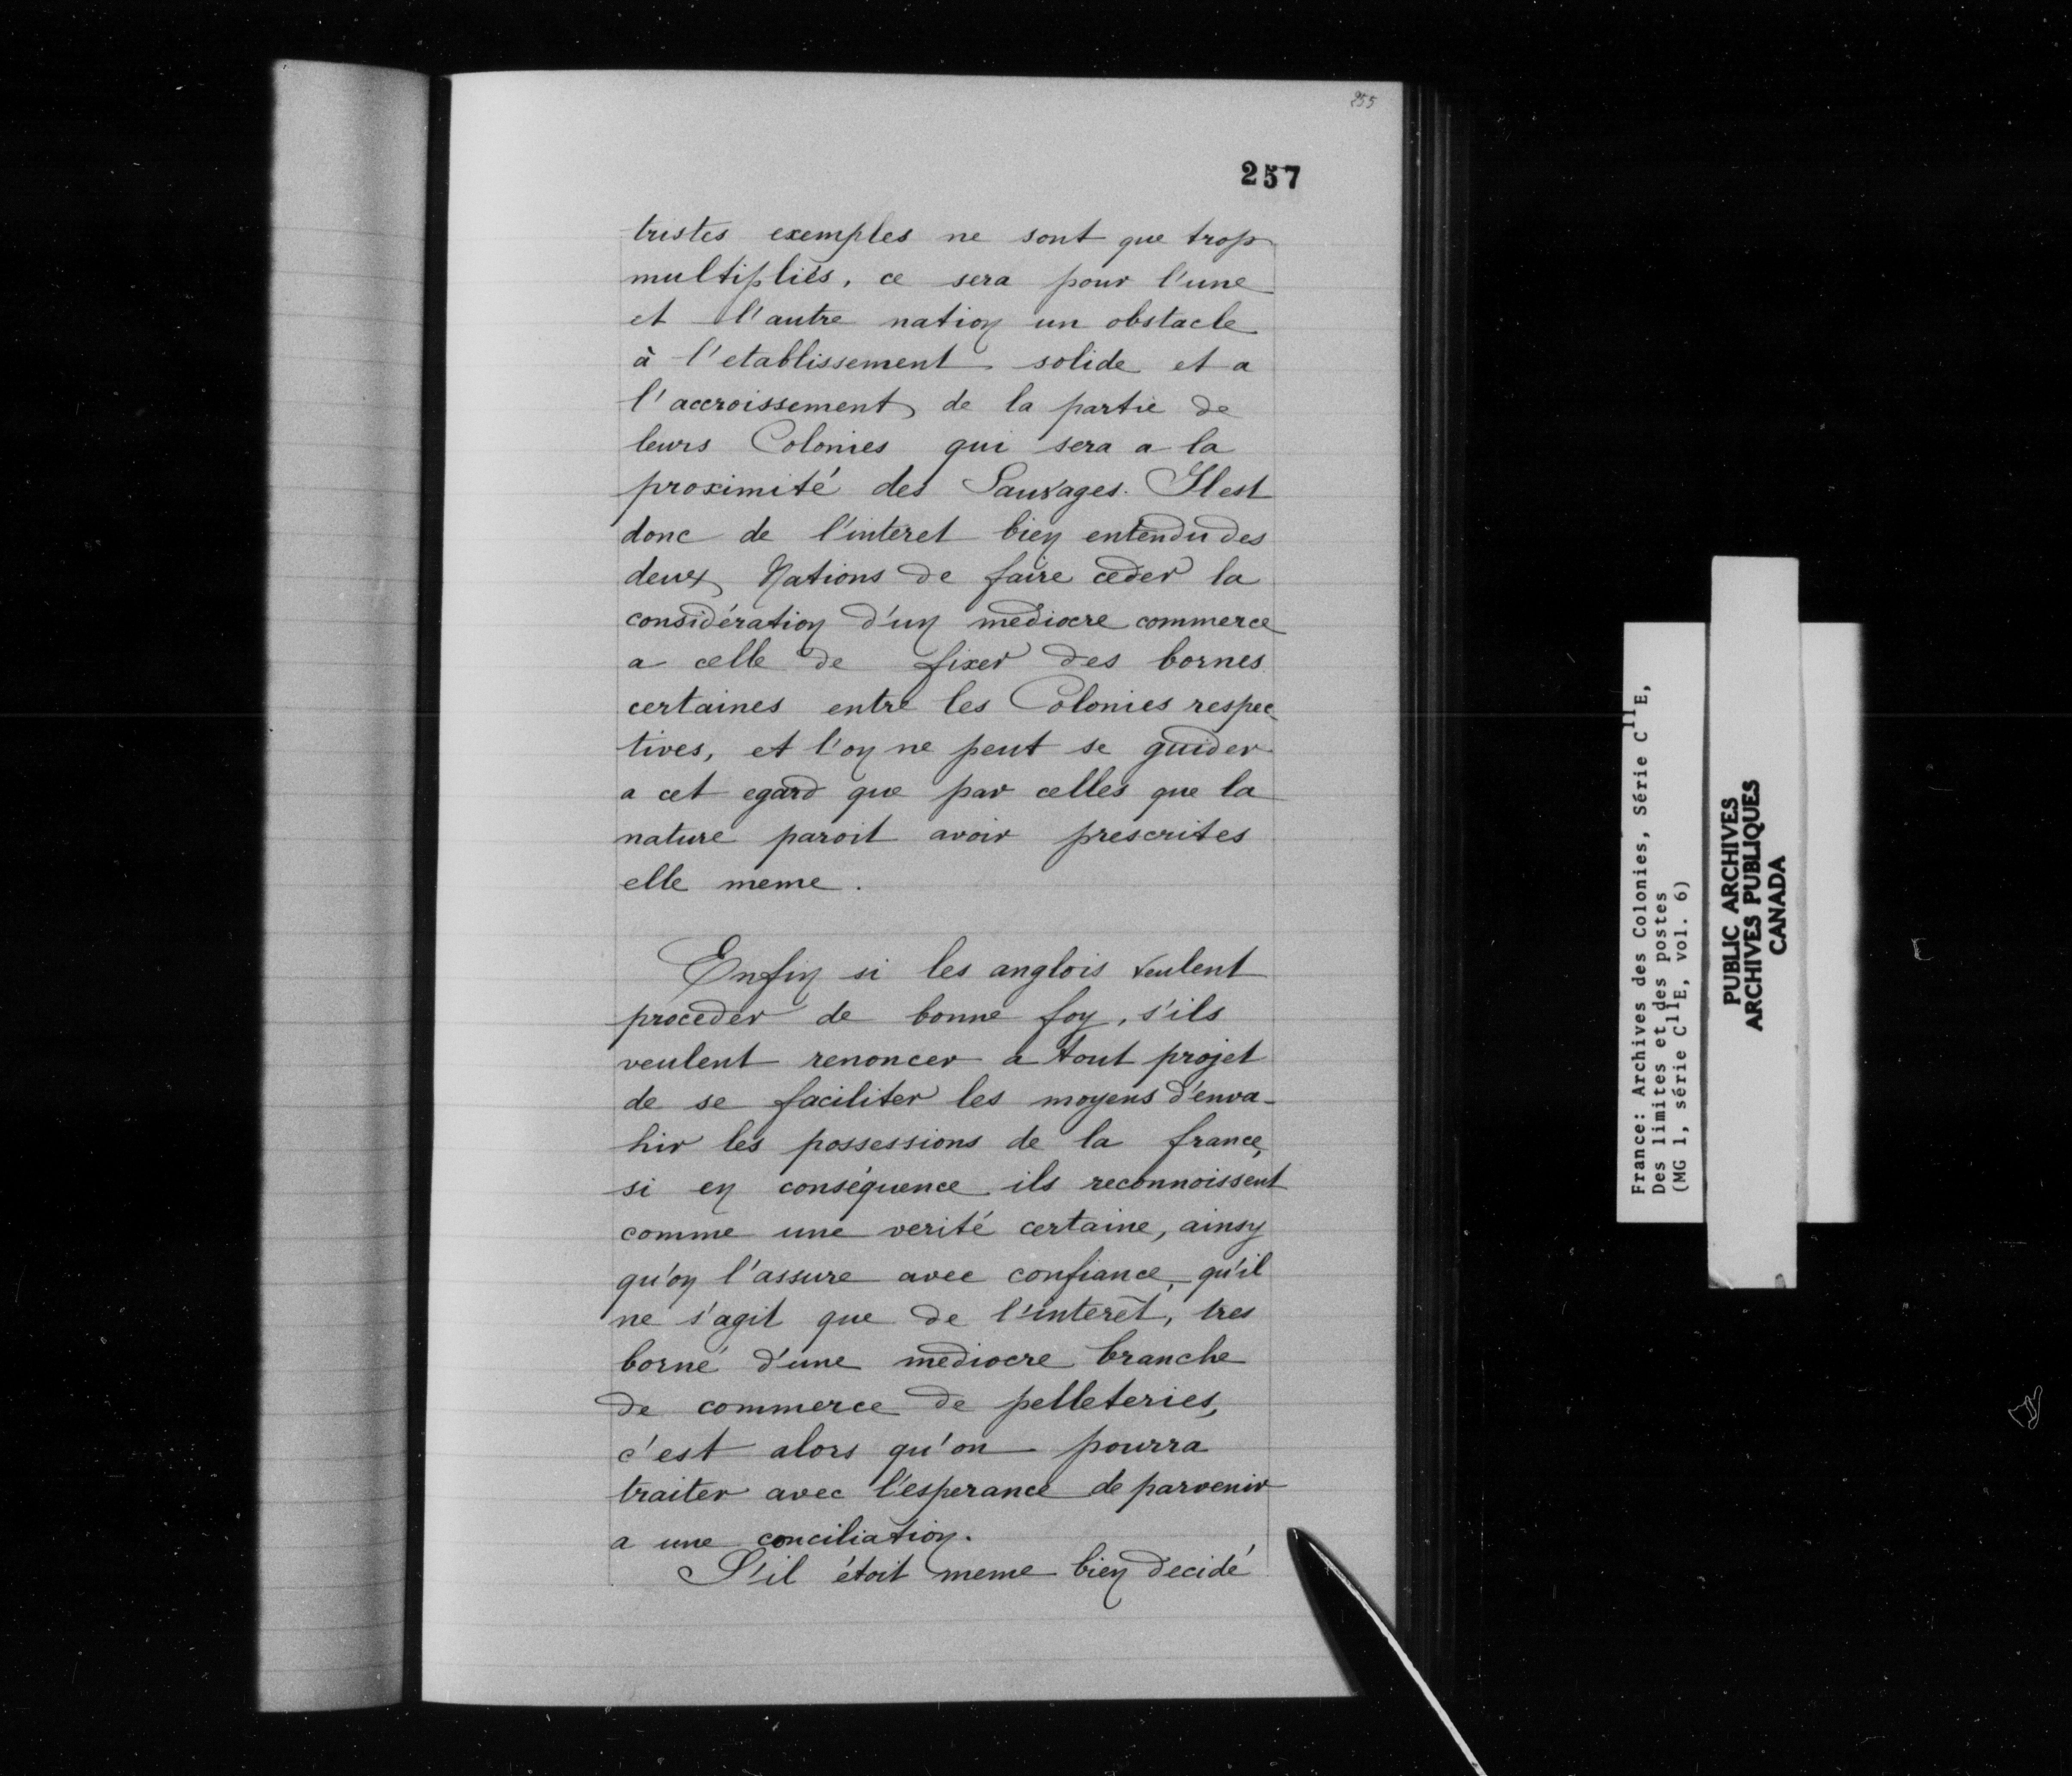 255
257
tristes exemples ne sont que trop
multipliés, ce sera pour l'une
et l'autre nation un obstacle
à l'etablissement solide et a
l'accroissement de la partie de
leurs Colonies qui sera a la
proximité des Sauvages. Il est
donc de l'interet bien entendu des
deux Nations de faire ceder la
considération d'un mediocre commerce
a celle de fixer des bornes
certaines entre les Colonies respec-
tives, et l'on ne peut se guider
a cet egard que par celles que la
nature paroit avoir prescrites
elle meme.
Enfin si les anglois veulent
proceder de bonne foy, s'ils
veulent renoncer a tout projet
de se faciliter les moyens d'enva-
hir les possessions de la france,
si en conséquence ils reconnoissent
comme une verité certaine, ainsy
qu'on l'assure avec confiance, qu'il
ne s'agit que de l'interêt, tres
borné d'une mediocre branche
de commerce de pelleteries,
c'est alors qu'on pourra
traiter avec l'esperance de parvenir
a une conciliation.
S'il étoit meme bien decidé
France: Archives des Colonies, Série C11E,
Des limites et des postes
(MG 1, série C11E, vol. 6)
PUBLIC ARCHIVES
ARCHIVES PUBLIQUES
CANADA